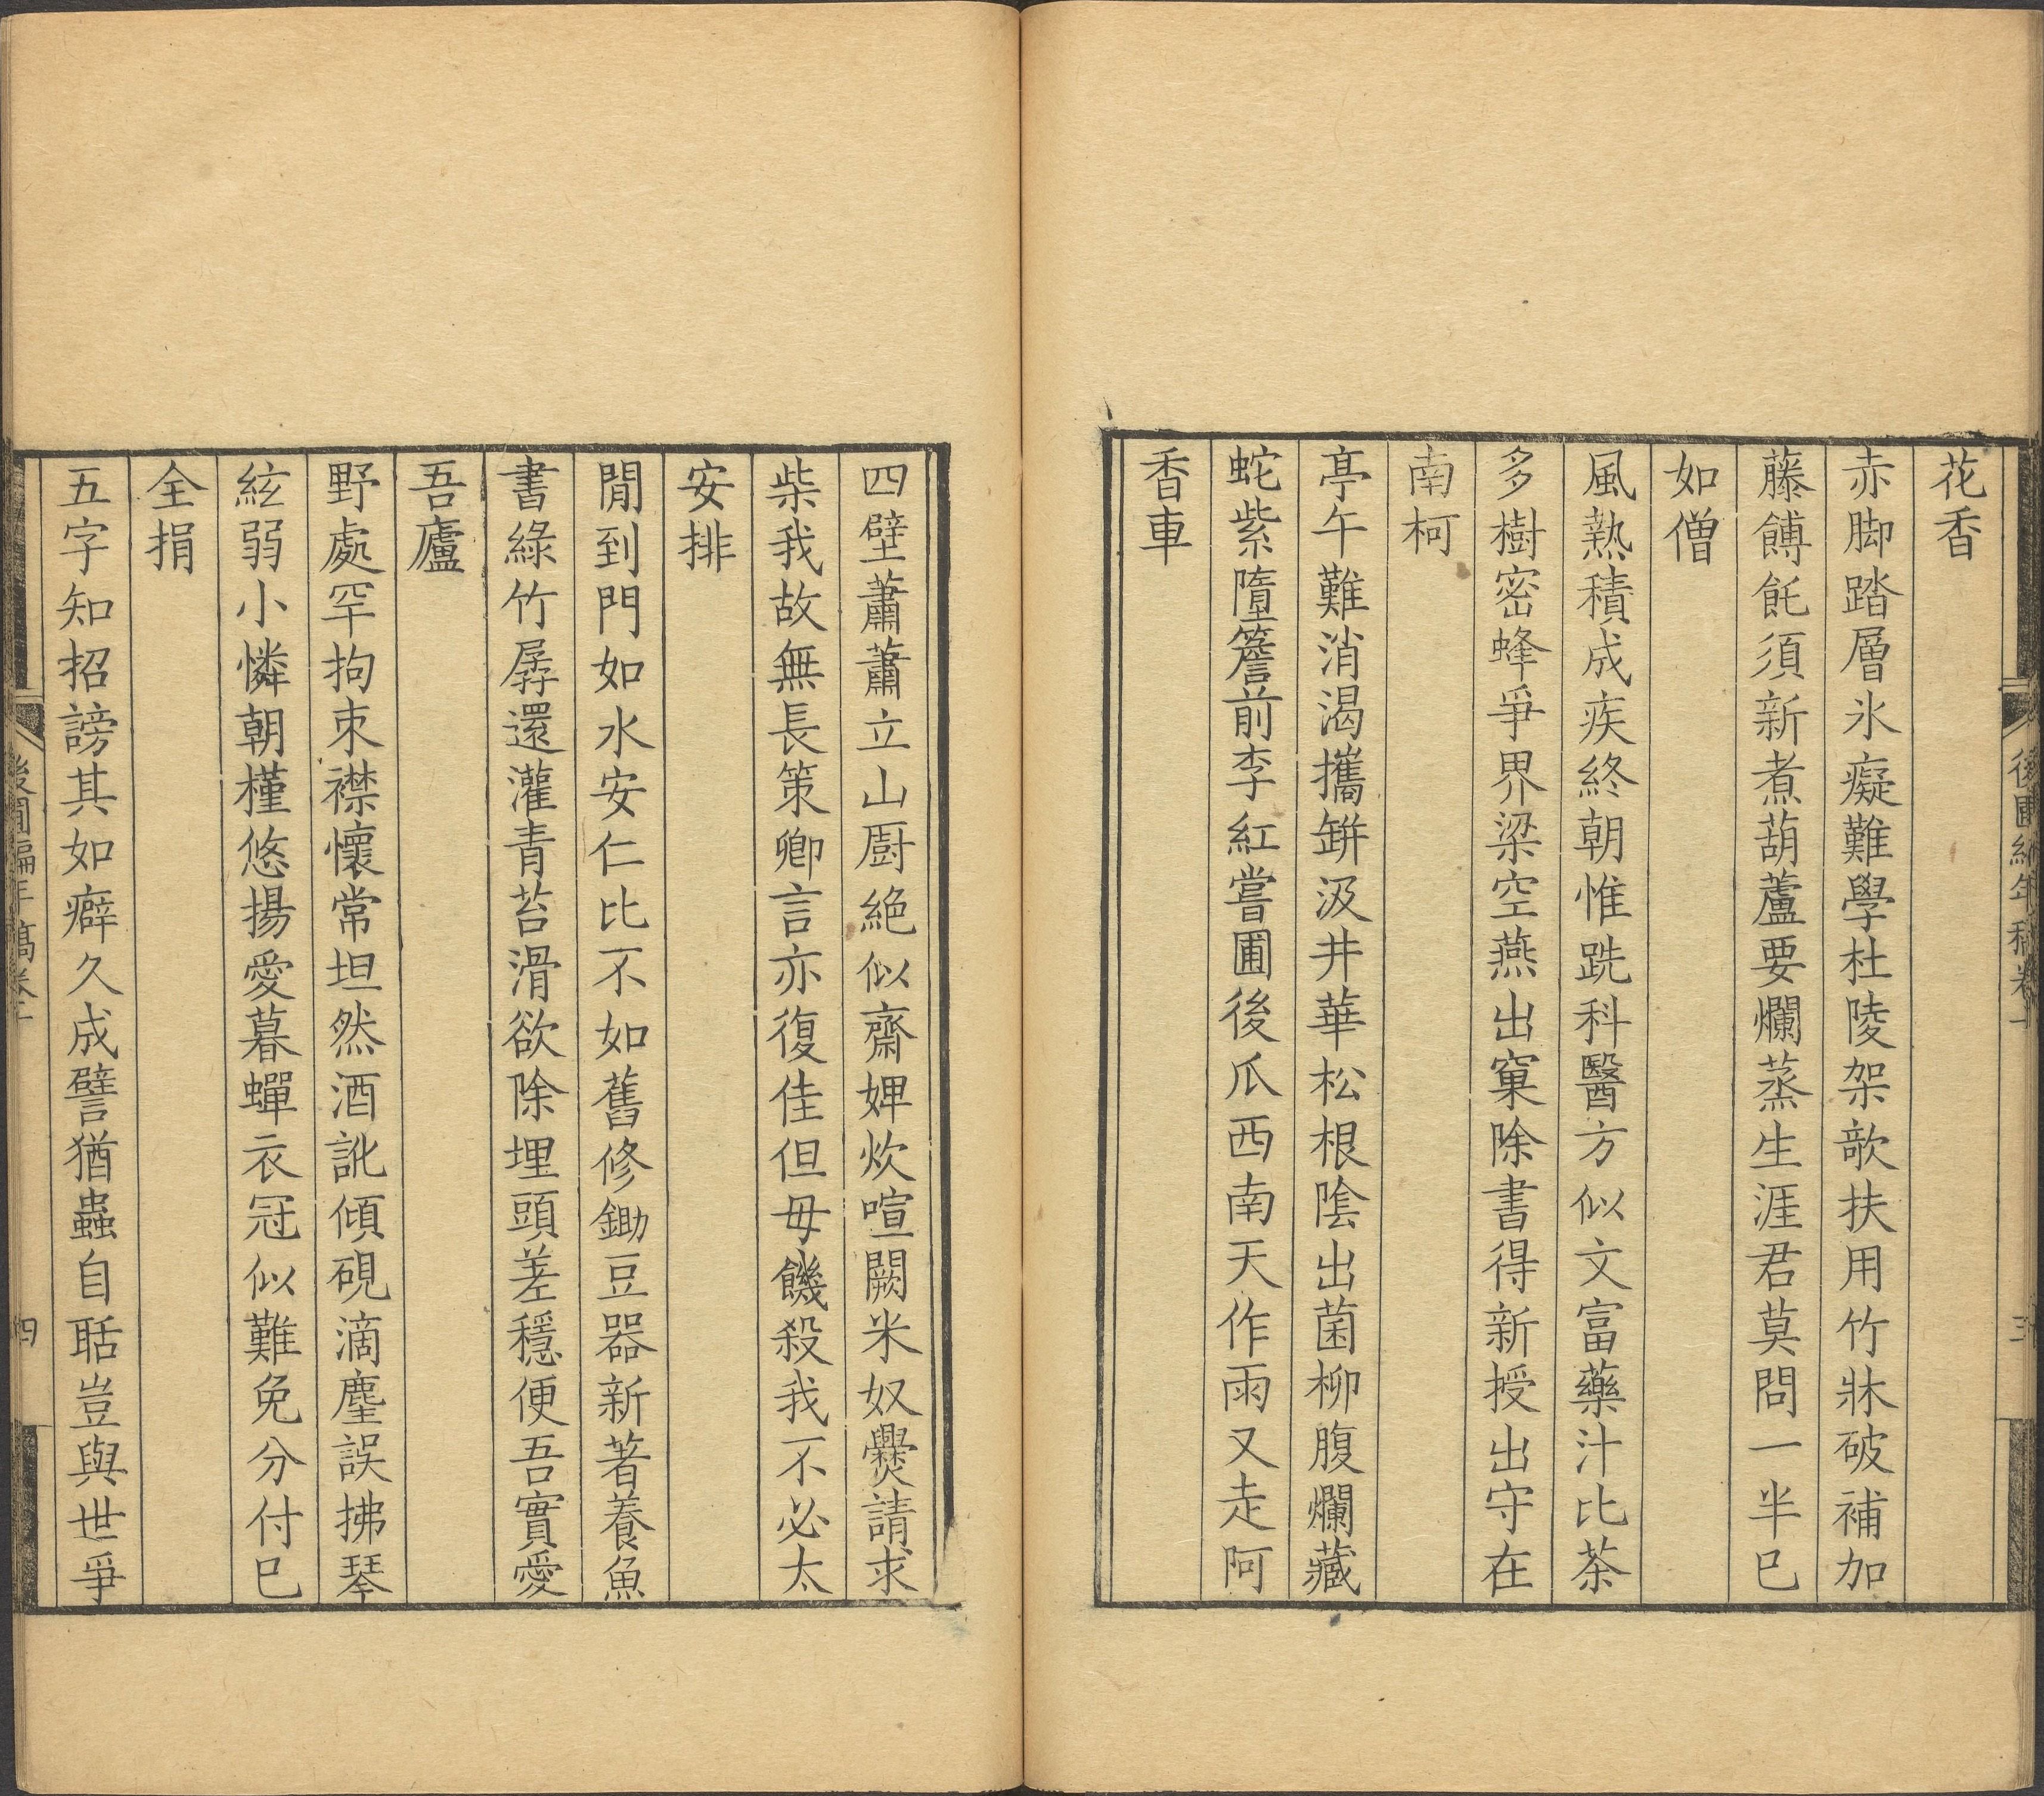 花香
赤脚踏層氷癡難學杜陵架欹扶用竹牀破補加
藤餺飥須新煮葫蘆要爛蒸生涯君莫問一半巳
如僧
風熱積成疾終朝惟跣科醫方似文富藥汁比茶
多樹密蜂爭界梁空燕出窠除書得新授出守在
南柯
亭午難消渴攜缾汲井華松根陰出菌柳腹爛藏
蛇紫墮簷前李紅嘗圃後瓜西南天作雨又走阿
香車
四壁蕭蕭立山厨絕似齋婢炊喧闕米奴爨請求
柴我故無長策卿言亦復佳但毋饑殺我不必太
安排
閒到門如水安仁比不如舊修鋤豆器新著養魚
書綠竹孱還灌青苔滑欲除埋頭差穩便吾實愛
吾廬
野處罕拘束襟懷常坦然酒訛傾硯滴塵誤拂琴
絃弱小憐朝槿悠揚愛暮蟬衣冠似難免分付巳
全捐
五字知招謗其如癖久成譬猶蟲自聒豈與世爭
後圃編年稿卷一
三
後圃編年稿卷一
四